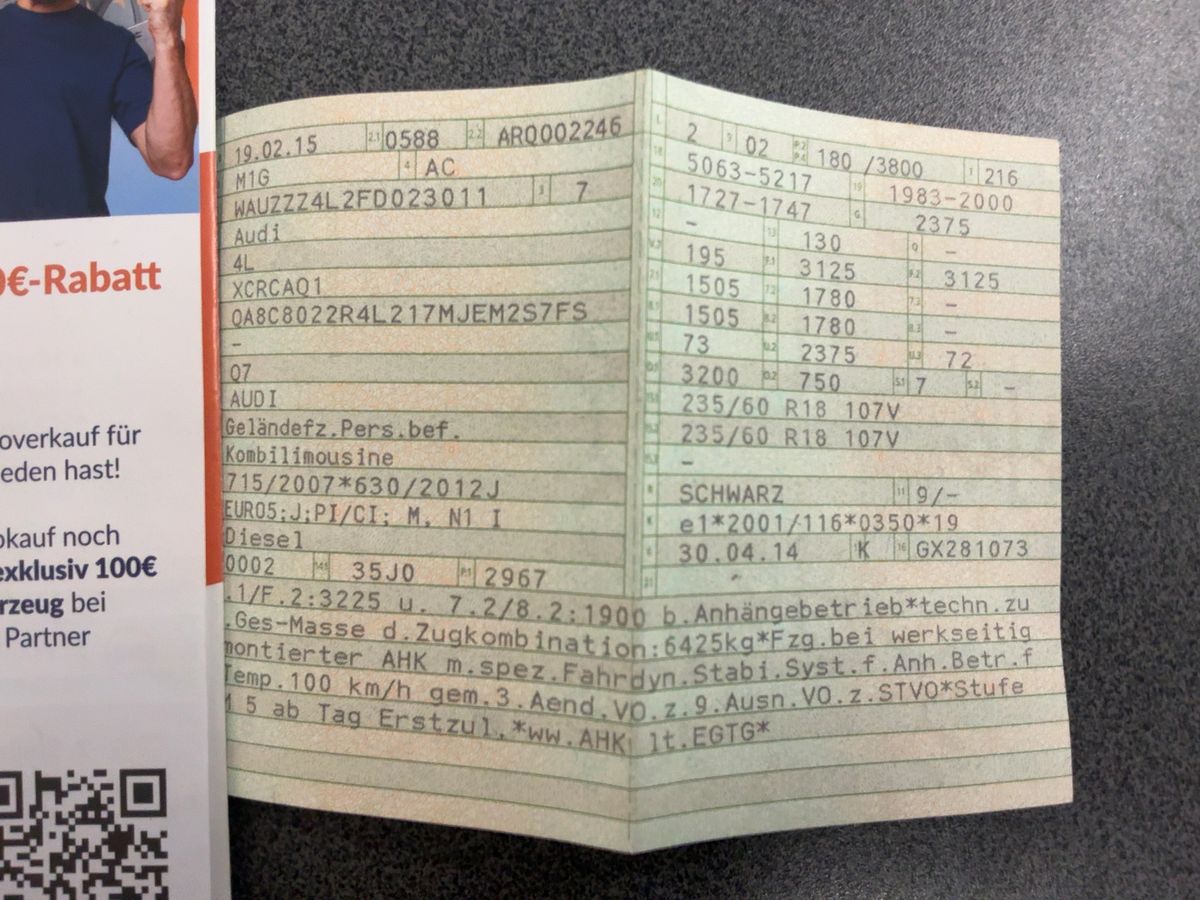 0€-Rabatt
overkauf für
eden hast!
kauf noch
exklusiv 100€
rzeug bei
Partner
19.02.15 2.1 0588 2.2 ARQ002246
M1G 4 AC
WAUZZZ4L2FD023011 3 7
Audi
4L
XCRCAQ1
QA8C8022R4L217MJEM2S7FS
–
Q7
AUDI
Geländefz.Pers.bef.
Kombilimousine
715/2007*630/2012J
EURO5;J;PI/CI; M, N1 I
Diesel
0002 14.1 35J0 P.1 2967
2 9 02 P.2 P.4 180 /3800 T 216
18 5063-5217 19 1983-2000
20 1727-1747 G 2375
12 – 13 130 Q –
V.7 195 F.1 3125 F.2 3125
7.1 1505 7.2 1780 7.3 –
8.1 1505 8.2 1780 8.3 –
U.1 73 U.2 2375 U.3 72
O.1 3200 O.2 750 S.1 7 S.2 –
15.1 235/60 R18 107V
15.2 235/60 R18 107V
15.3 –
R SCHWARZ 11 9/-
K e1*2001/116*0350*19
6 30.04.14 K 16 GX281073
21
.1/F.2:3225 u. 7.2/8.2:1900 b.Anhängebetrieb*techn.zu
.Ges-Masse d.Zugkombination:6425kg*Fzg.bei werkseitig
montierter AHK m.spez.Fahrdyn.Stabi.Syst.f.Anh.Betr.f
Temp.100 km/h gem.3.Aend.VO.z.9.Ausn.VO.z.STVO*Stufe
M 5 ab Tag Erstzul.*ww.AHK lt.EGTG*